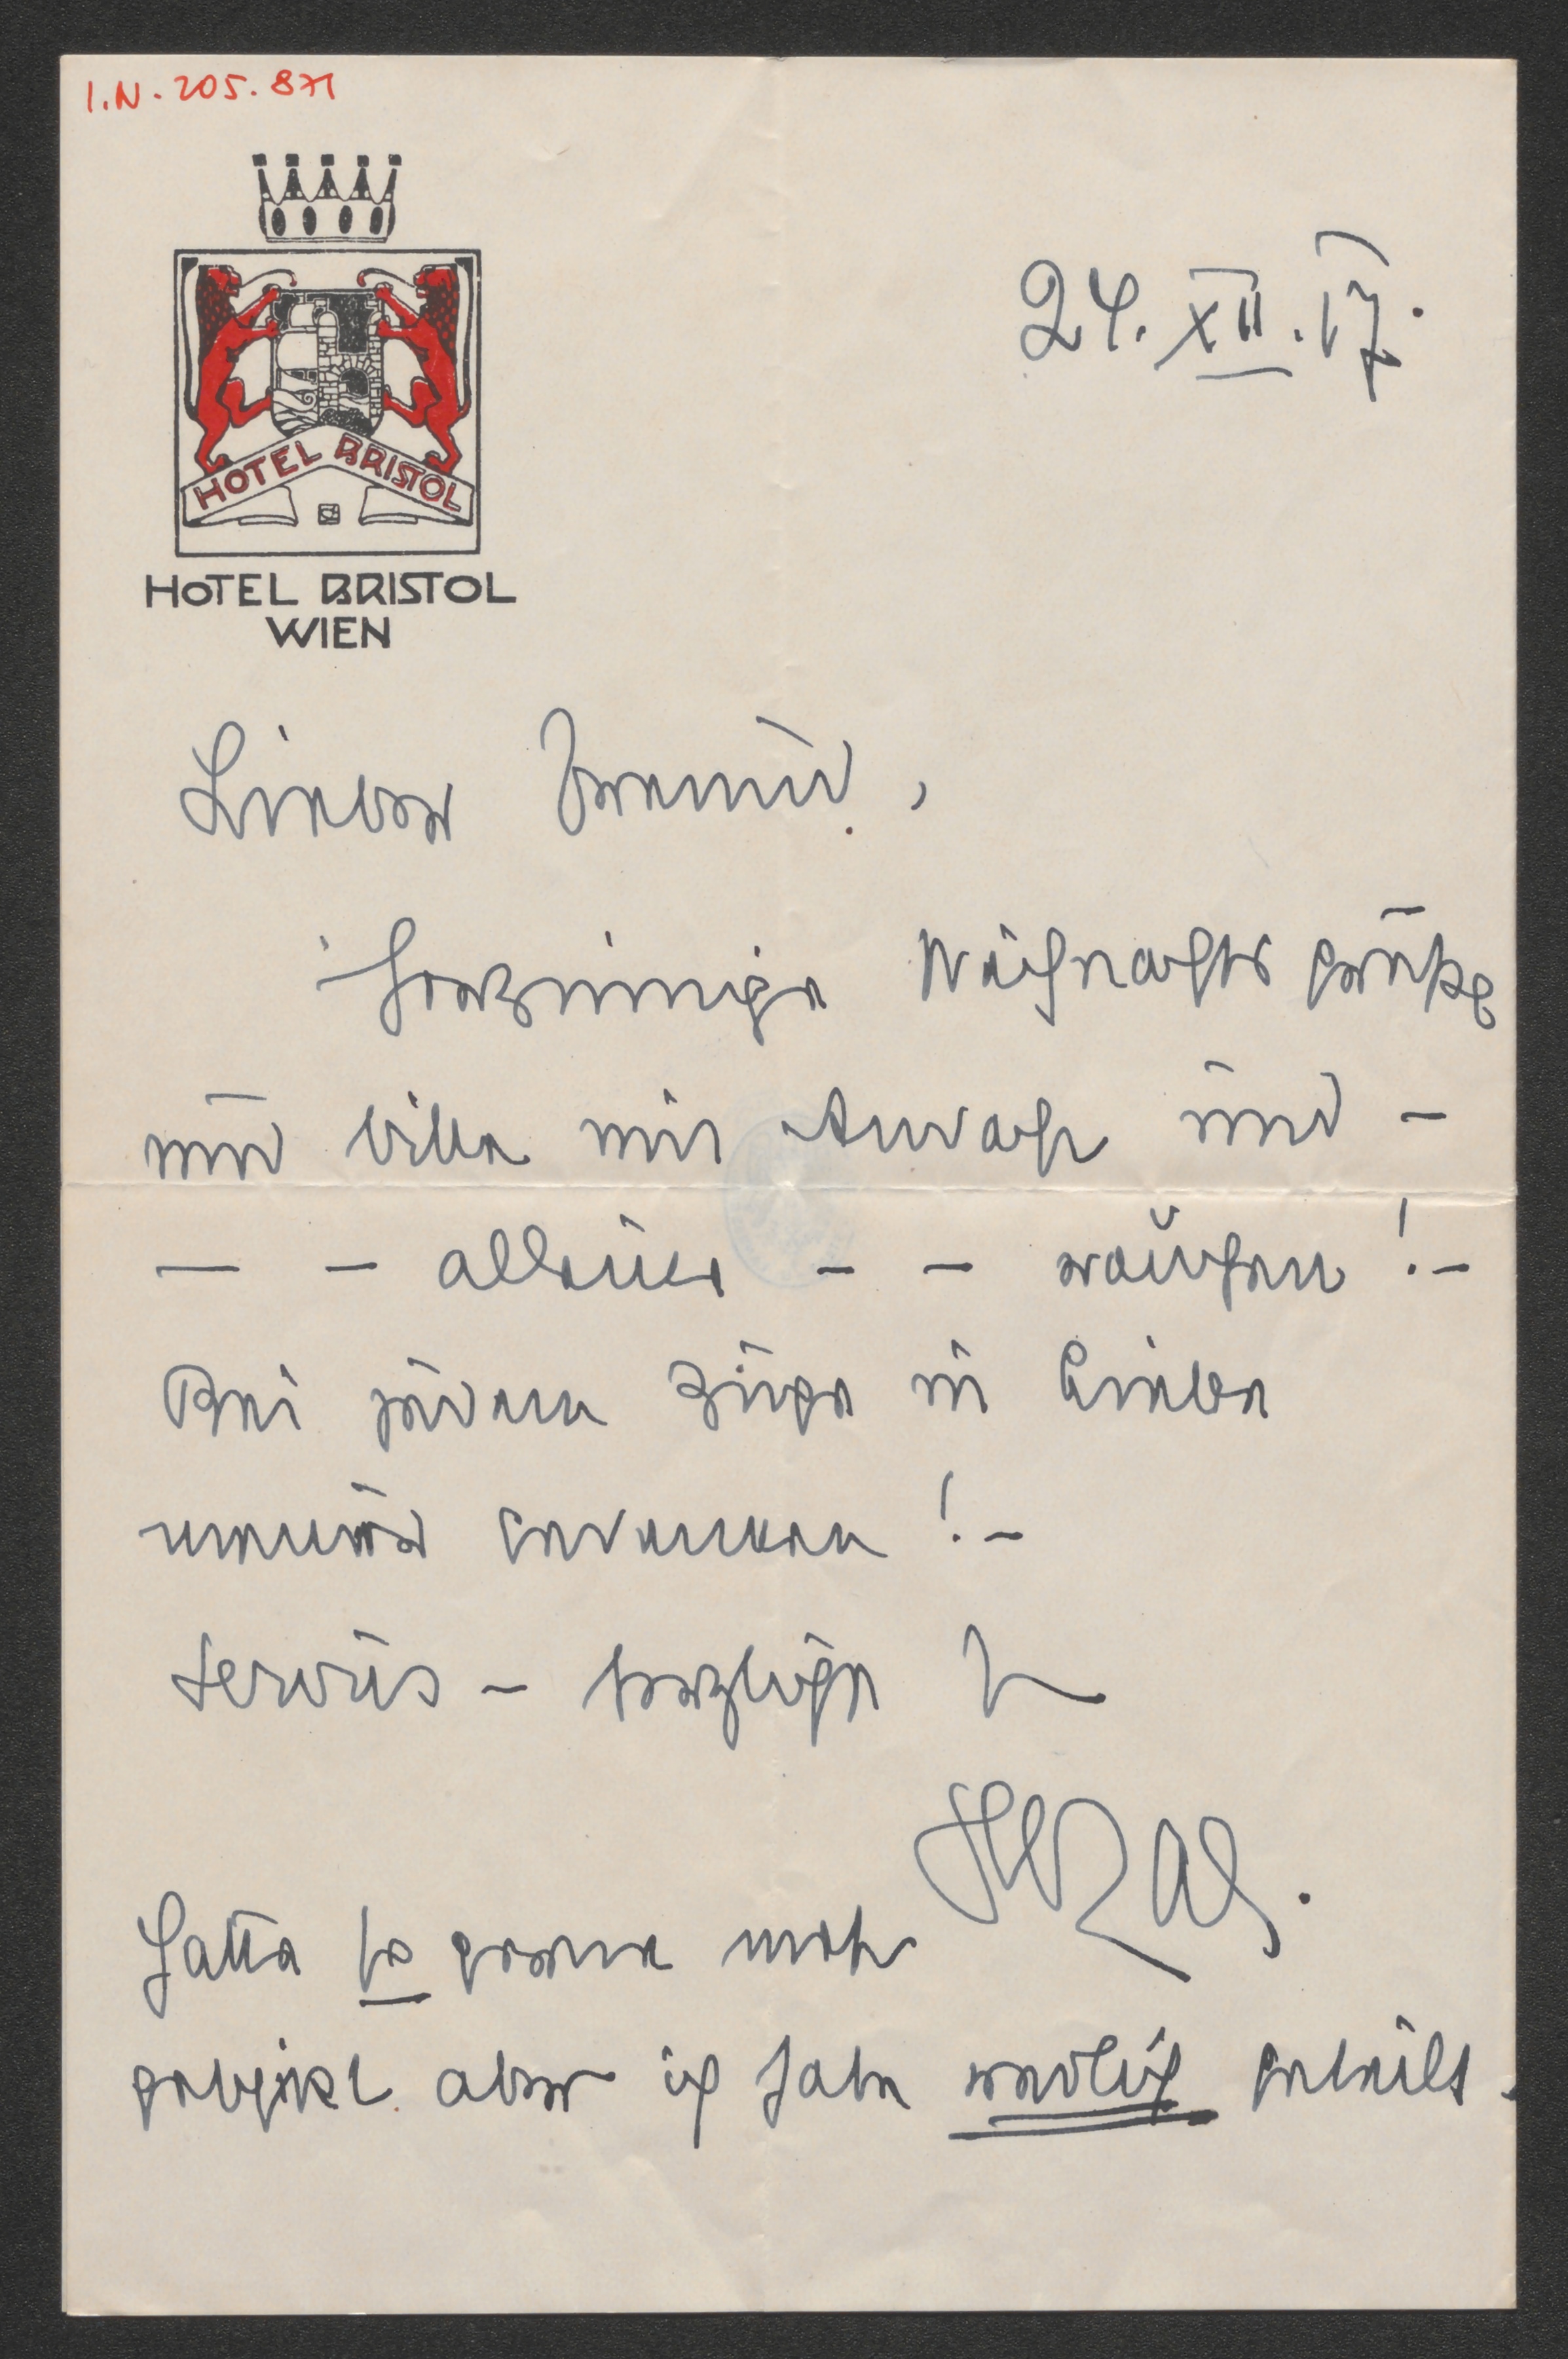 I.N. 205.871
HOTEL BRISTOL
HOTEL BRISTOL
WIEN
24. XII. 17.
Lieber Freund,
Herzinnige Weihnachtsgrüße
und bitte mit Andacht und –
– – alleine – – rauchen! –
Bei jedem Zuge in Liebe
meiner gedenken! –
Servus – herzlichst

Hätte so gerne mehr
geschickt aber ich habe redlich geteilt.